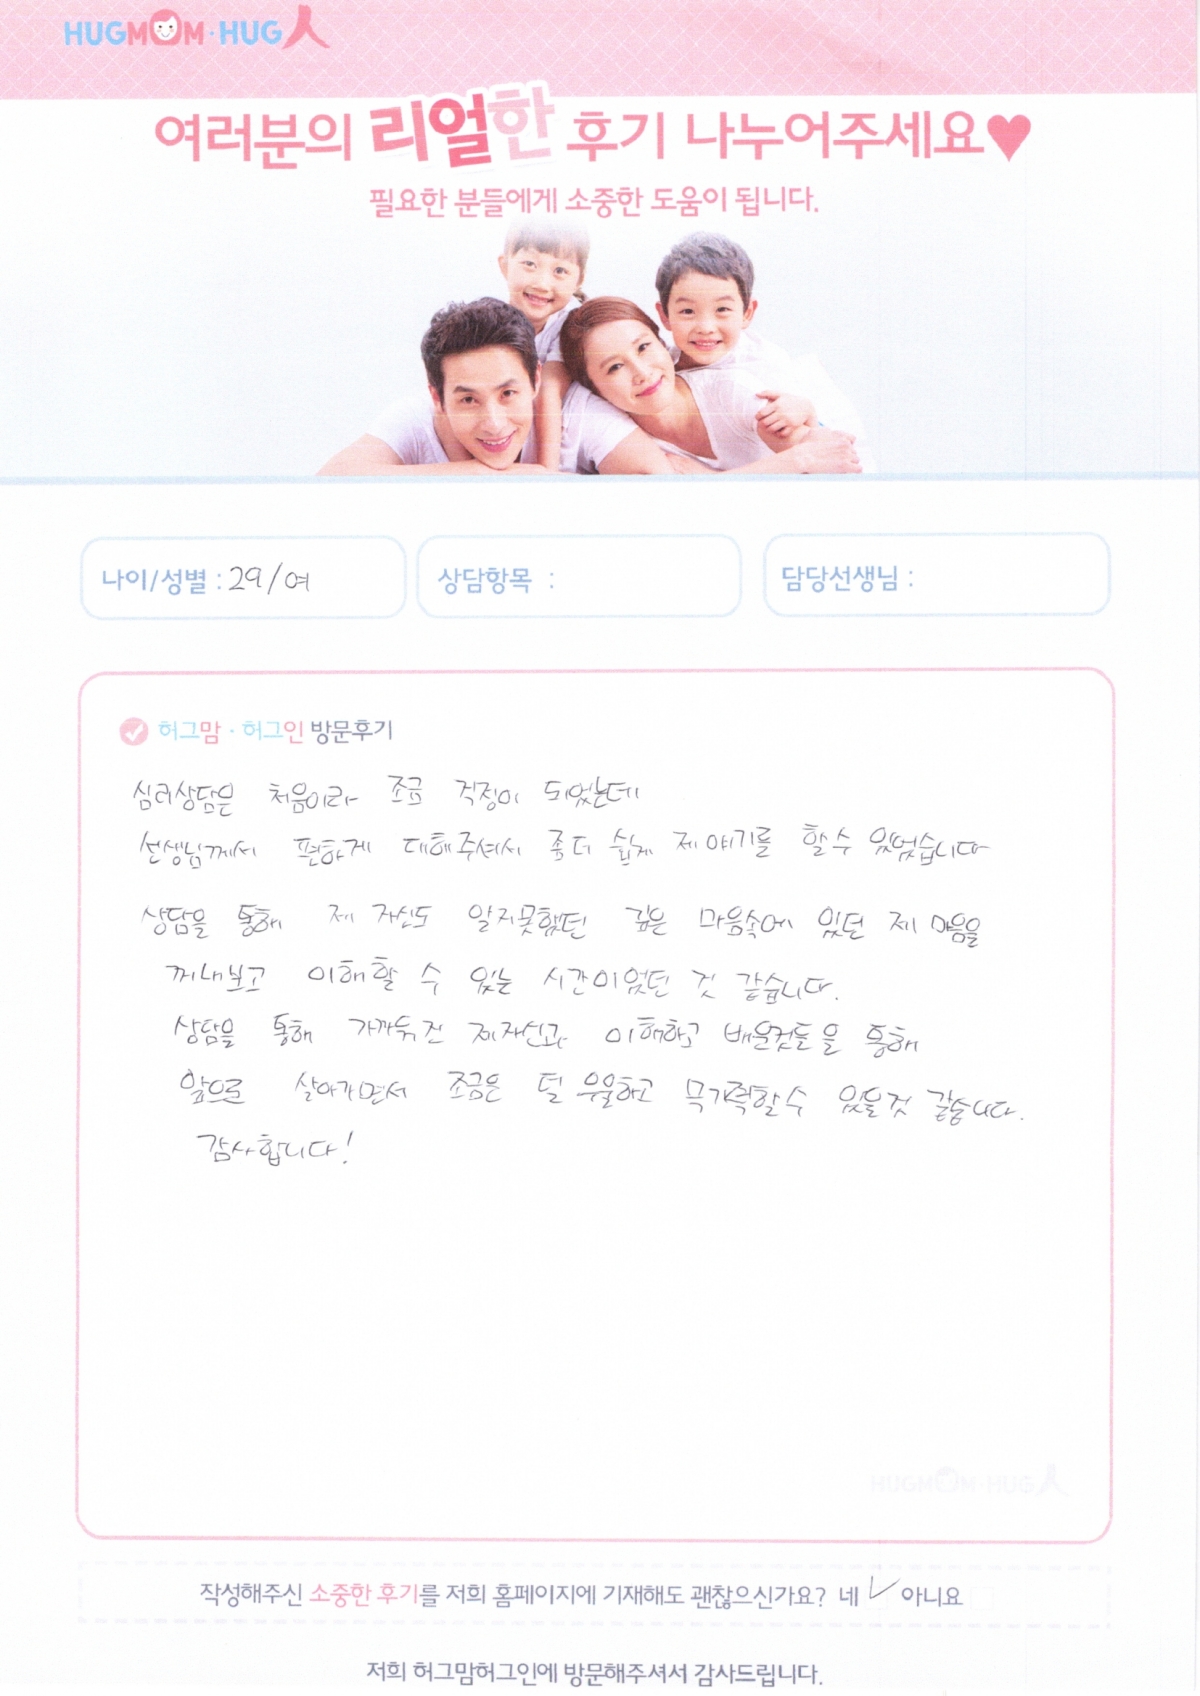 HUGMOM·HUG人
여러분의 리얼한 후기 나누어주세요♥
필요한 분들에게 소중한 도움이 됩니다.
나이/성별 : 29/여
상담항목 :
담당선생님 :
허그맘·허그인 방문후기
심리상담은 처음이라 조금 걱정이 되었는데
선생님께서 편하게 대해주셔서 좀더 쉽게 제 얘기를 할수 있었습니다
상담을 통해 제 자신도 알지못했던 깊은 마음속에 있던 제 마음을
꺼내보고 이해할 수 있는 시간이었던 것 같습니다.
상담을 통해 가까워진 제자신과 이해하고 배운것들을 통해
앞으로 살아가면서 조금은 덜 우울하고 무기력할수 있을것 같습니다.
감사합니다!
HUGMOM·HUG人
작성해주신 소중한 후기를 저희 홈페이지에 기재해도 괜찮으신가요? 네 ✓ 아니요
저희 허그맘허그인에 방문해주셔서 감사드립니다.